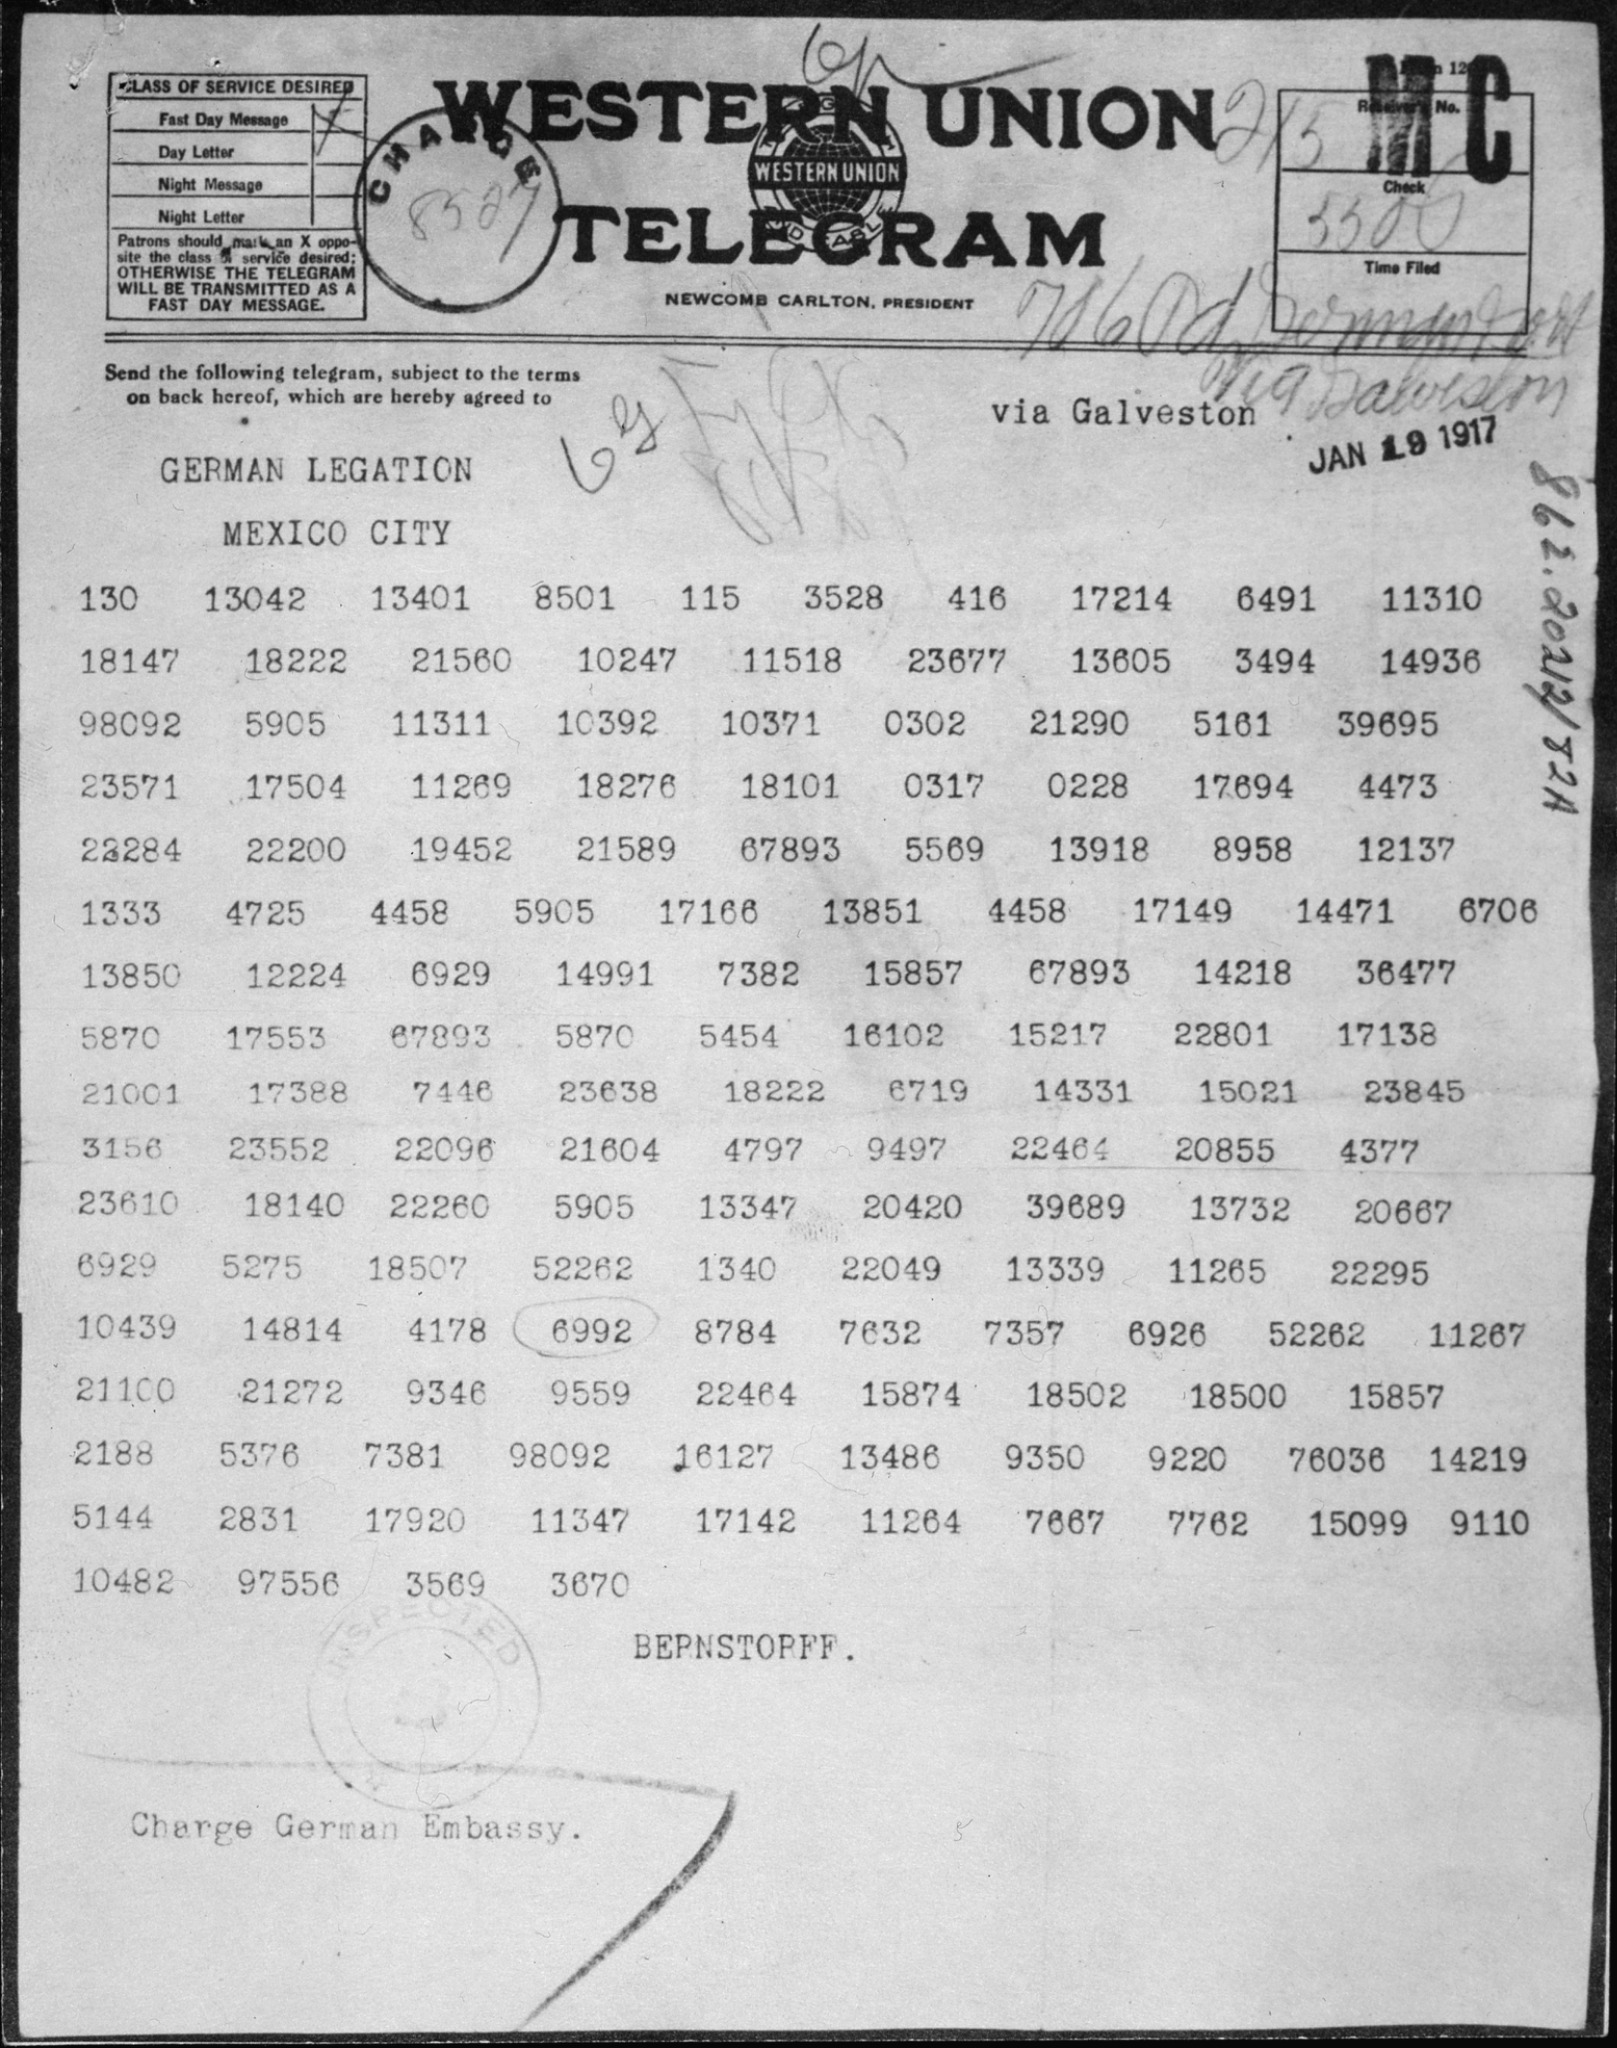 CLASS OF SERVICE DESIRED
Fast Day Message
Day Letter
Night Message
Night Letter
Patrons should mark an X oppo-
site the class of service desired;
OTHERWISE THE TELEGRAM
WILL BE TRANSMITTED AS A
FAST DAY MESSAGE.
CHARGE
8527
WESTERN UNION
WESTERN UNION
TELEGRAM
NEWCOMB CARLTON, PRESIDENT
215
Receiver's No.
MC
Check
Time Filed
Send the following telegram, subject to the terms
on back hereof, which are hereby agreed to
via Galveston
via Galveston
JAN 19 1917
GERMAN LEGATION
MEXICO CITY
130 13042 13401 8501 115 3528 416 17214 6491 11310
18147 18222 21560 10247 11518 23677 13605 3494 14936
98092 5905 11311 10392 10371 0302 21290 5161 39695
23571 17504 11269 18276 18101 0317 0228 17694 4473
22284 22200 19452 21589 67893 5569 13918 8958 12137
1333 4725 4458 5905 17166 13851 4458 17149 14471 6706
13850 12224 6929 14991 7382 15857 67893 14218 36477
5870 17553 67893 5870 5454 16102 15217 22801 17138
21001 17388 7446 23638 18222 6719 14331 15021 23845
3156 23552 22096 21604 4797 9497 22464 20855 4377
23610 18140 22260 5905 13347 20420 39689 13732 20667
6929 5275 18507 52262 1340 22049 13339 11265 22295
10439 14814 4178 6992 8784 7632 7357 6926 52262 11267
21100 21272 9346 9559 22464 15874 18502 18500 15857
2188 5376 7381 98092 16127 13486 9350 9220 76036 14219
5144 2831 17920 11347 17142 11264 7667 7762 15099 9110
10482 97556 3569 3670
BERNSTORFF.
INSPECTED
Charge German Embassy.
862.20212/82A